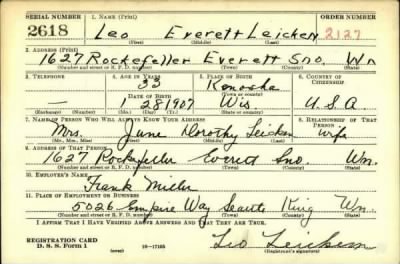 SERIAL NUMBER 1. NAME (Print) ORDER NUMBER
2618 Leo Everett Leicken 2127
(First) (Middle) (Last)
2. ADDRESS (Print)
1627 Rockefeller Everett Sno. Wn
(Number and street or R. F. D. number) (Town) (County) (State)
3. TELEPHONE 4. AGE IN YEARS 5. PLACE OF BIRTH 6. COUNTRY OF CITIZENSHIP
33 Kenosha
DATE OF BIRTH (Town or county)
— 1 28 1907 Wis U.S.A
(Exchange) (Number) (Mo.) (Day) (Yr.) (State or country)
7. NAME OF PERSON WHO WILL ALWAYS KNOW YOUR ADDRESS 8. RELATIONSHIP OF THAT PERSON
Mrs. June Dorothy Leicken wife
(Mr., Mrs., Miss) (First) (Middle) (Last)
9. ADDRESS OF THAT PERSON
1627 Rockefeller Everett Sno. Wn.
(Number and street or R. F. D. number) (Town) (County) (State)
10. EMPLOYER'S NAME
Frank Miller
11. PLACE OF EMPLOYMENT OR BUSINESS
5026 Empire Way Seattle King Wn.
(Number and street or R. F. D. number) (Town) (County) (State)
I AFFIRM THAT I HAVE VERIFIED ABOVE ANSWERS AND THAT THEY ARE TRUE.
REGISTRATION CARD
D. S. S. Form 1 (over) 16—17105 Leo Leicken
(Registrant's signature)